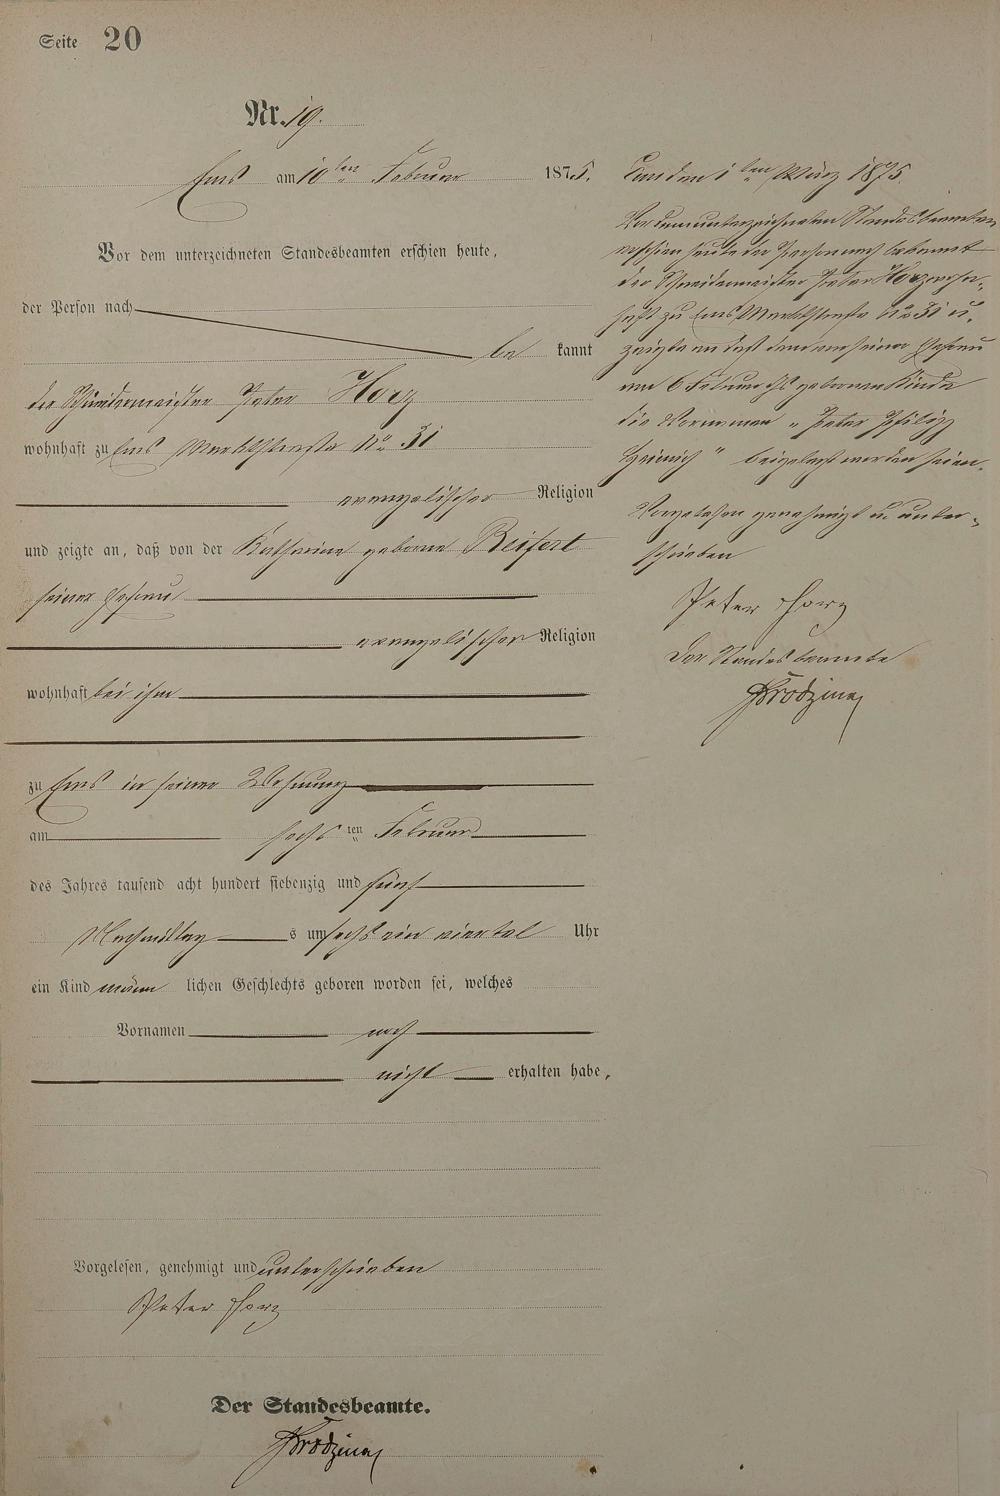 Seite 20
Nr. 19.
Ems am 10ten Februar 1875.
Vor dem unterzeichneten Standesbeamten erschien heute,
der Person nach
be kannt
der Schneidermeister Peter Horz
wohnhaft zu Ems Marktstraße No. 31
evangelischer Religion
und zeigte an, daß von der Katharina geborne Reifert
seiner Ehefrau
evangelischer Religion
wohnhaft bei ihm
zu Ems in seiner Wohnung
am sechsten Februar
des Jahres tausend acht hundert siebenzig und fünf
Nachmittags um sechs ein viertel Uhr
ein Kind männlichen Geschlechts geboren worden sei, welches
Vornamen noch
nicht erhalten habe,
Vorgelesen, genehmigt und unterschrieben
Peter Horz
Der Standesbeamte.
Ems den 1ten März 1875.
Vor dem unterzeichneten Standesbeamten
erschien heute der Person nach bekannt
der Schneidermeister Peter Horz wohn-
haft zu Ems Marktstraße No 31 u.
zeigte an daß dem von seiner Ehefrau
am 6 Februar geborenen Kinde
die Vornamen „Peter Philipp
Heinrich" beigelegt worden seien.
Vorgelesen genehmigt u unter-
schrieben
Peter Horz
Der Standesbeamte